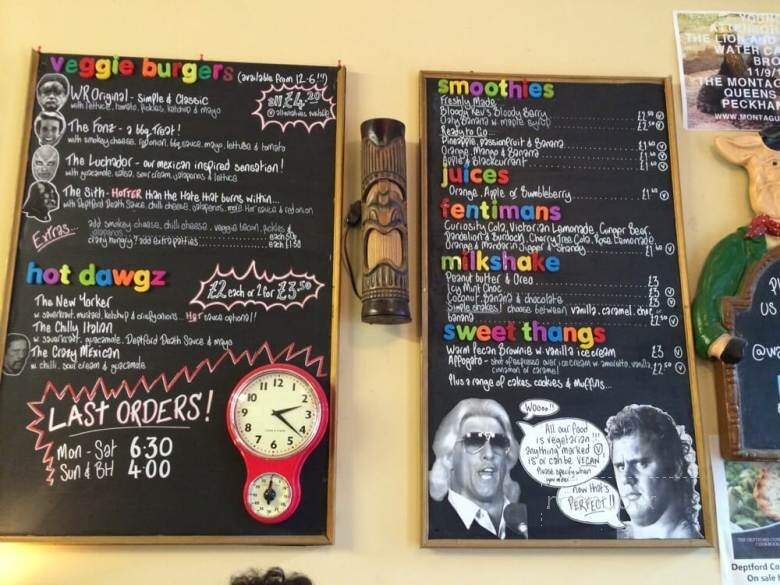 veggie burgers (available from 12-6!!)
WR Original - Simple & Classic
with lettuce, tomato, pickles, ketchup & mayo
all £4.20
The Fonz - a bbq treat!
with smokey cheese, bbq sauce, mayo, lettuce & tomato
The Luchador - our mexican inspired sensation!
with guacamole, salsa, sour cream, jalapenos & lettice
The Sith - HOTTER than the Hate that burns within...
with Deptford Death Sauce, chilli cheese, jalapenos, & red onion
Extras...
add smokey cheese, chilli cheese, veggie bacon, pickles &
jalapenos each 50p
crazy hungry? add extra patties each £1.50
hot dawgz
£2 each or 2 for £3.50
The New Yorker
w. sauerkraut, mustard, ketchup & crispy onions... Hot sauce optional!!
The Chilly Italian
w. sauerkraut, guacamole, Deptford Death Sauce & mayo
The Crazy Mexican
w. chilli, sour cream & guacamole
LAST ORDERS!
Mon - Sat 6:30
Sun & BH 4:00
smoothies
Freshly Made
Bloody Kev's Bloody Berry
Oaty Banana w. maple syrup
Ready to Go...
Pineapple, passionfruit & Banana
Orange, Mango & Banana
Apple & Blackcurrant
juices
Orange, Apple or Bumbleberry
fentimans
Curiosity Cola, Victorian Lemonade, Ginger Beer,
Dandelion & Burdock, Cherry Tree Cola, Rose Lemonade,
Orange & Mandarin Jigger & Shandy
milkshake
Peanut butter & Oreo £3
Icy Mint Choc £3
Coconut, Banana & chocolate £3
Simple shakes! choose between vanilla, caramel, choc or
banana £2.50
sweet thangs
Warm Pecan Brownie w. vanilla ice cream £3
Affogato - shot of espresso over ice cream w. amaretto, vanilla,
cinnamon or caramel £2.50
Plus a range of cakes, cookies & muffins...
Wooo!!
All our food
is vegetarian!!!
anything marked V
is or can be VEGAN
Please specify when
you order...
...now that's
PERFECT!!
THE LION AND
WATER
BRO
11/9/
THE MONTAG
QUEENS
PECKHA
WWW.MONTAGU
US
@wa
Deptford Ca
On sale